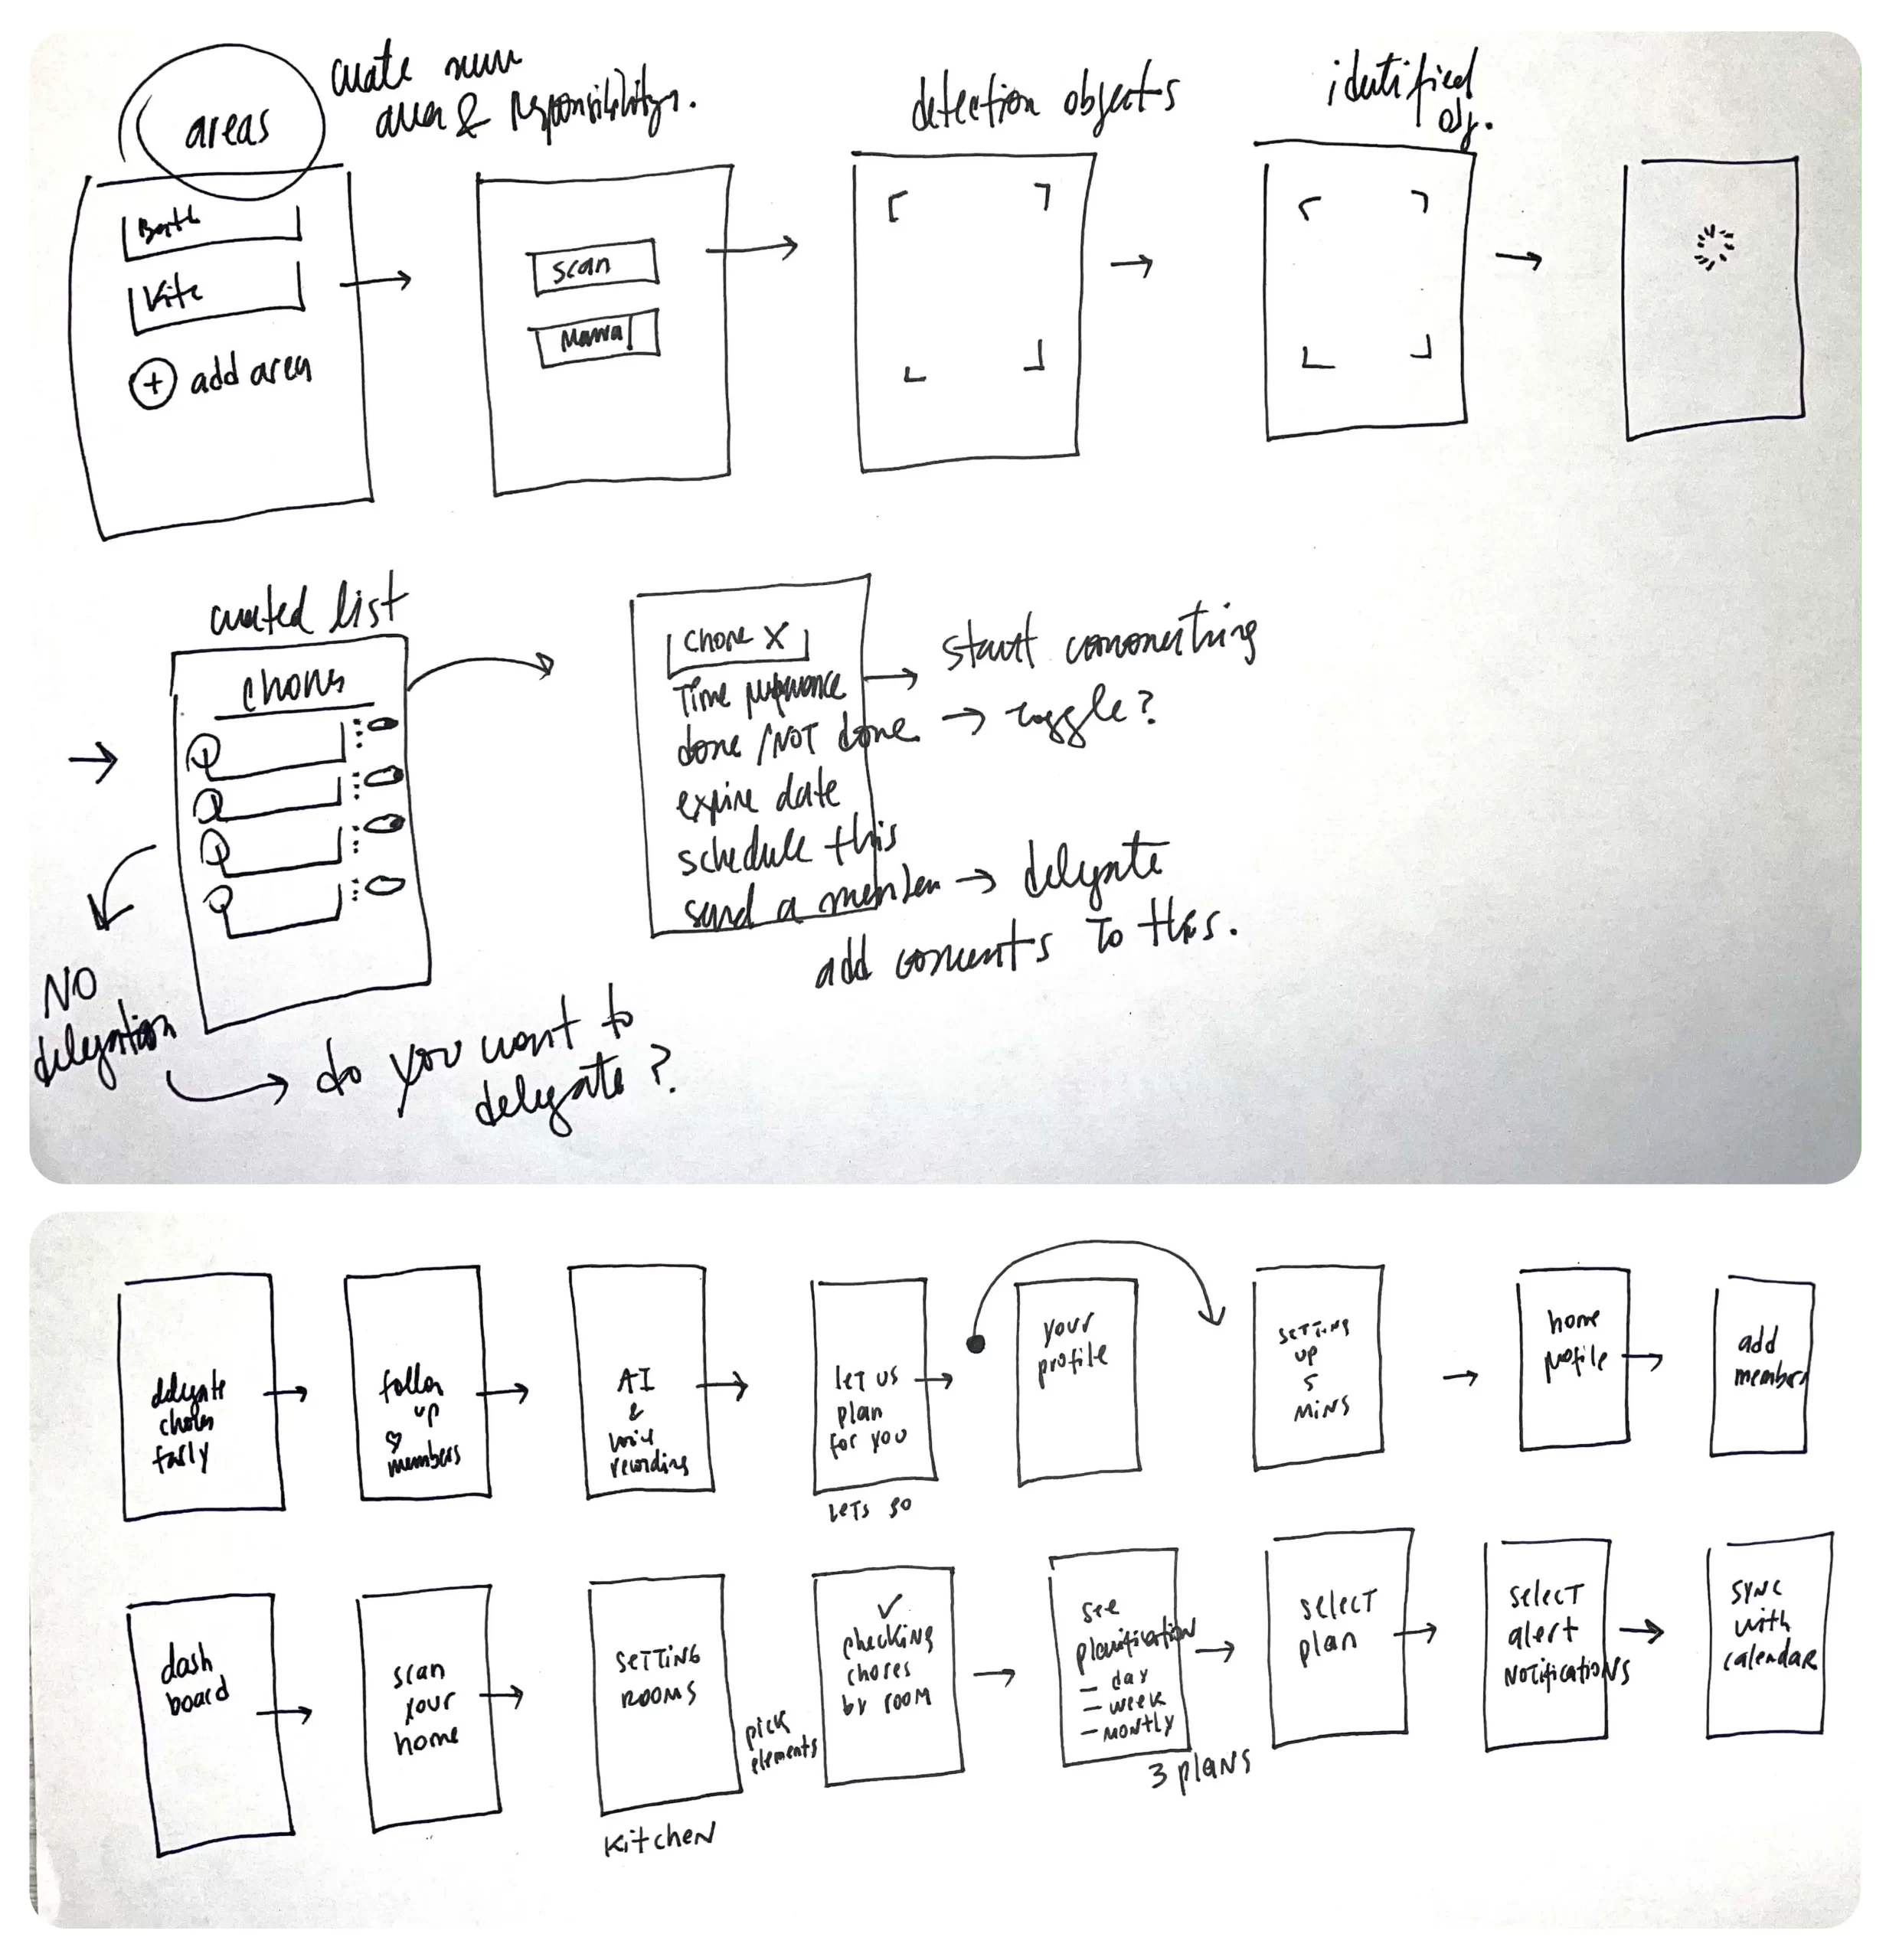 areas
create new
area & responsibility.
Bath
Kite
+ add area
scan
Manual
detection objects
identified
obj.
created list
chores
NO
delegation
do you want to
delegate?
chore X
Time
done / NOT done → toggle?
expire date
schedule this
send a member → delegate
add coments to this.
start
delegate
chores
farly
follow
up
members
AI
&
voice
recording
let us
plan
for you
lets go
your
profile
setting
up
5
mins
home
profile
add
members
dash
board
scan
your
home
setting
rooms
kitchen
pick
elements
✓
checking
chores
by room
see
planification
- day
- week
- montly
3 plans
select
plan
select
alert
notifications
sync
with
calendar